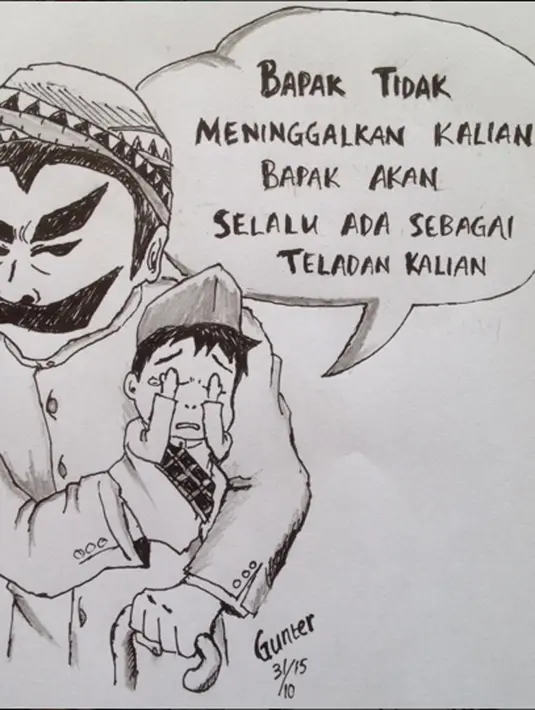 BAPAK TIDAK
MENINGGALKAN KALIAN
BAPAK AKAN
SELALU ADA SEBAGAI
TELADAN KALIAN
Gunter
31/15
/10